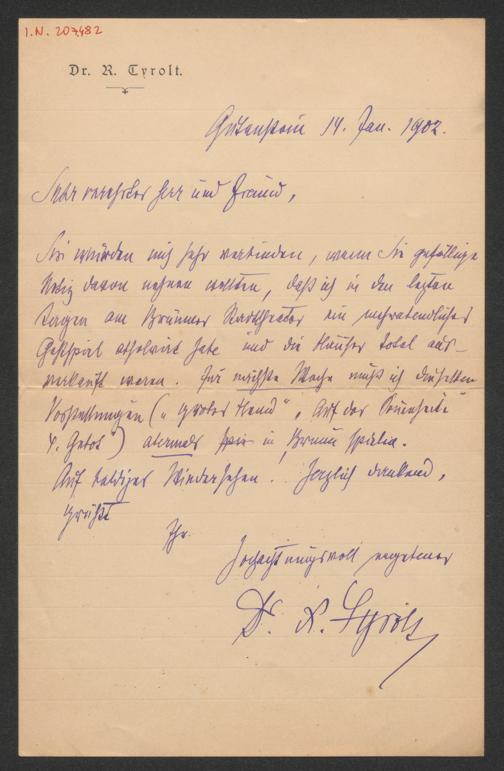 I.N. 207.482
Dr. R. Tyrolt.
Gutenstein 14. Jan. 1902.
Sehr verehrter Herr und Freund,
Sie würden mich sehr verbinden, wenn Sie gefällige
Notiz davon nehmen wollten, daß ich in den letzten
Tagen am Brünner Stadttheater ein mehrabendliches
Gastspiel absolvirt habe und die Häuser total aus-
verkauft waren. Für nächste Woche muß ich dieselben
Vorstellungen ("
" Auf der Sonnenseite"
4. Gebot") abermals hier in Brünn spielen.
Auf baldiges Wiedersehen. Herzlich dankend,
grüßt
Ihr
Hochachtungsvoll ergebener
Dr. R. Tyrolt